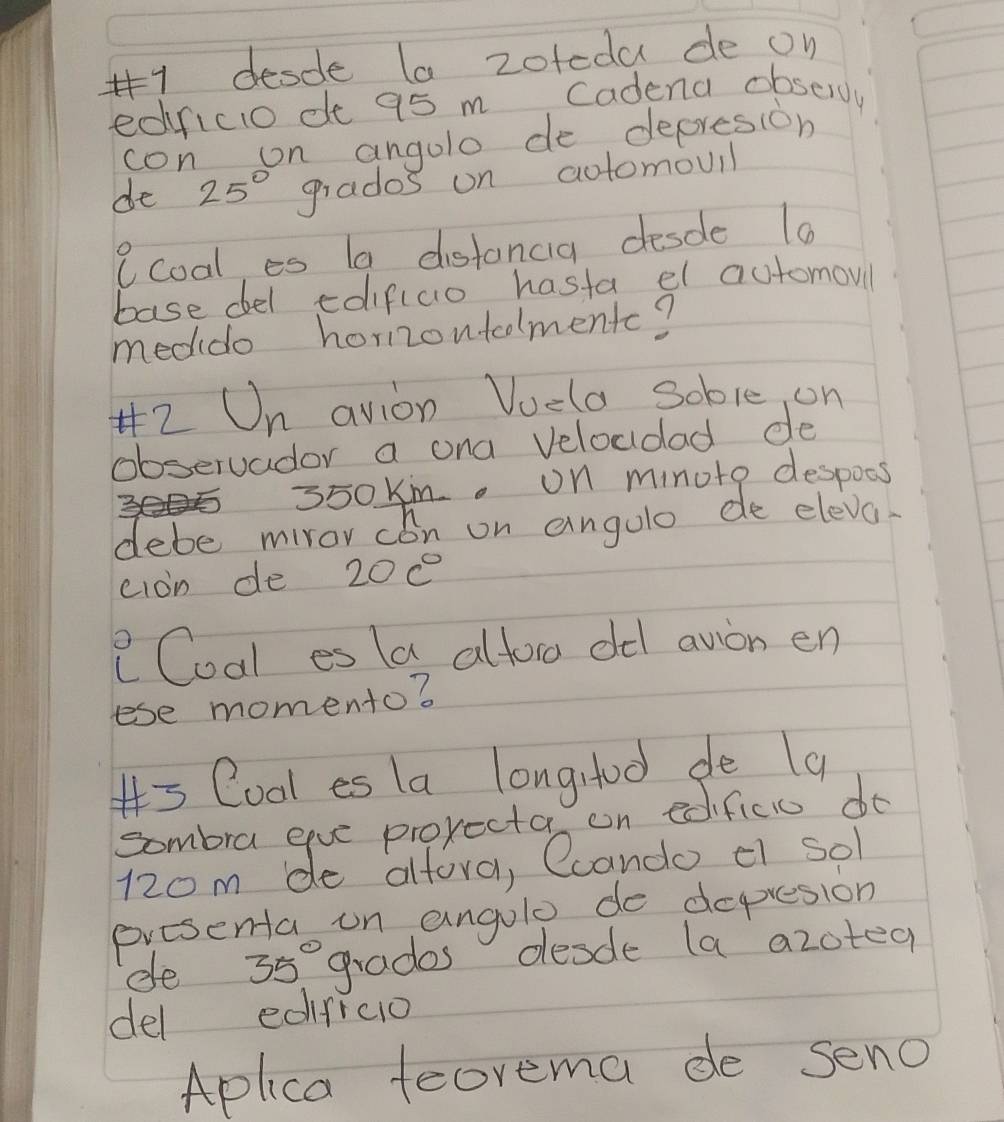 #1 desde la zoteda de on
edificio de 95 m Cadena observy
con un angulo de depresiòn
de 25° grados un automovil
¿cual es la distancia desde la
base del edificio hasta el automovil
medido horizontalmente?
#2 Un avion Vuela sobre un
observador a una velocidad de
350 Km/h. un minuto despues
debe mirar con un angulo de eleva-
ciòn de 20c°
¿Cual es la altura del avion en
ese momento?
#3 Cual es la longitud de la
sombra que proyecta un edificio de
120m de altura, Cuando el sol
presenta un angulo de depresiòn
de 35° grados desde la azotea
del edificio
Aplica teorema de seno